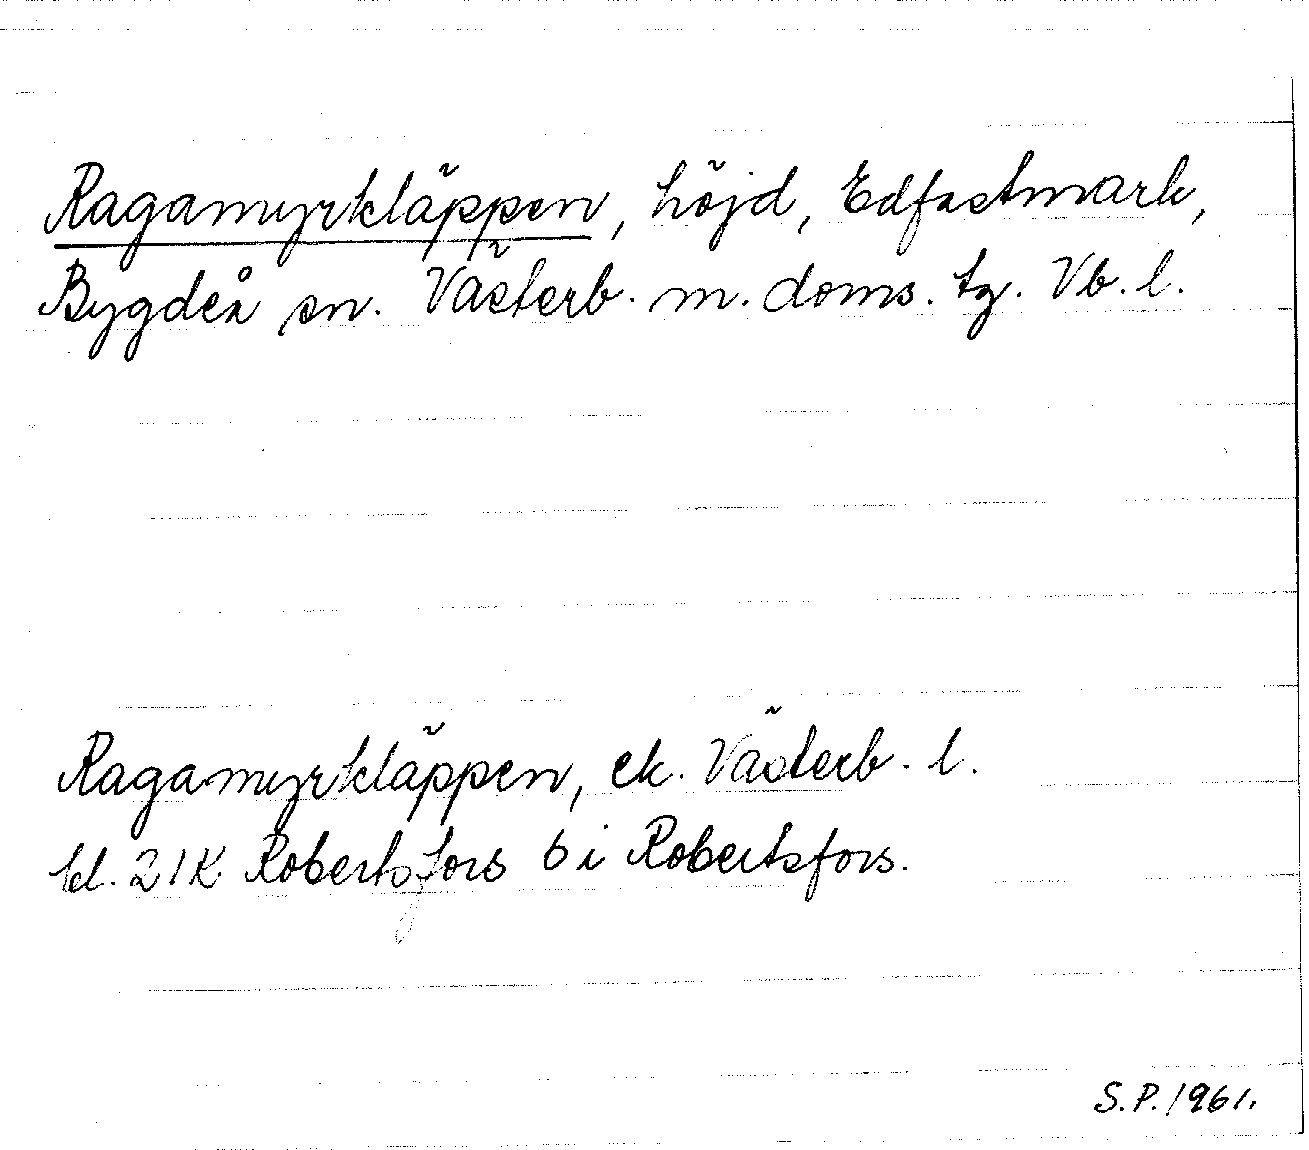 Ragamyrkläppen, höjd, Edfastmark,
Bygdeå sn. Västerb. m. doms. tg. Vb. l.
Ragamyrkläppen, ek. Västerb. l.
bl. 21K Robertsfors 6 i Robertsfors.
S.P. 1961.